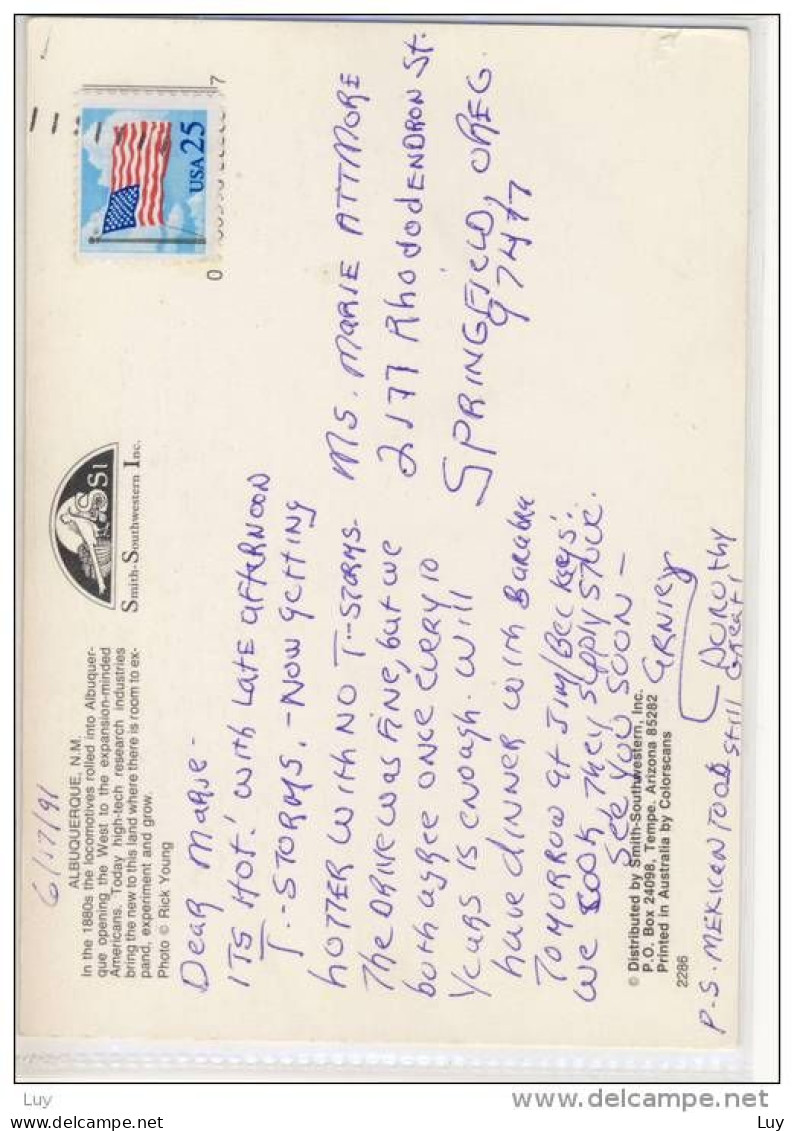 6/17/91
ALBUQUERQUE, N.M.
In the 1880s the locomotives rolled into Albuquer-
que opening the West to the expansion-minded
Americans. Today high-tech research industries
bring the new to this land where there is room to ex-
pand, experiment and grow.
Photo © Rick Young
SSI
Smith-Southwestern Inc.
USA 25
Dear Marie-
ITS HOT! WITH LATE AFTERNOON
T-STORMS. - NOW GETTING
HOTTER WITH NO T-STORMS.
The DRIVE WAS FINE, but we
both agree once every 10
years is enough. Will
have dinner with Barabra
Tomorrow at Jim/Bec Keys'.
We cook, they supply stuck.
See you soon -
ERNIE
DOROTHY
P.S. MEXICAN FOOD still Great!
MS. MARIE ATTMORE
2177 RhododENDRON St.
SPRINGFIELD, OREG.
97477
© Distributed by Smith-Southwestern, Inc.
P.O. Box 24098, Tempe, Arizona 85282
Printed in Australia by Colorscans
2286
Luy
delcampe.net
Luy
Luy